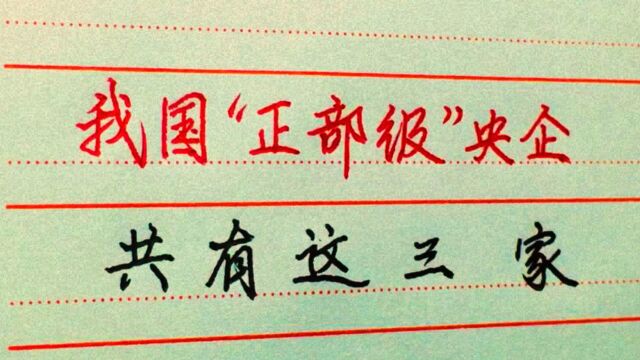 我国“正部级”央企
共有这三家